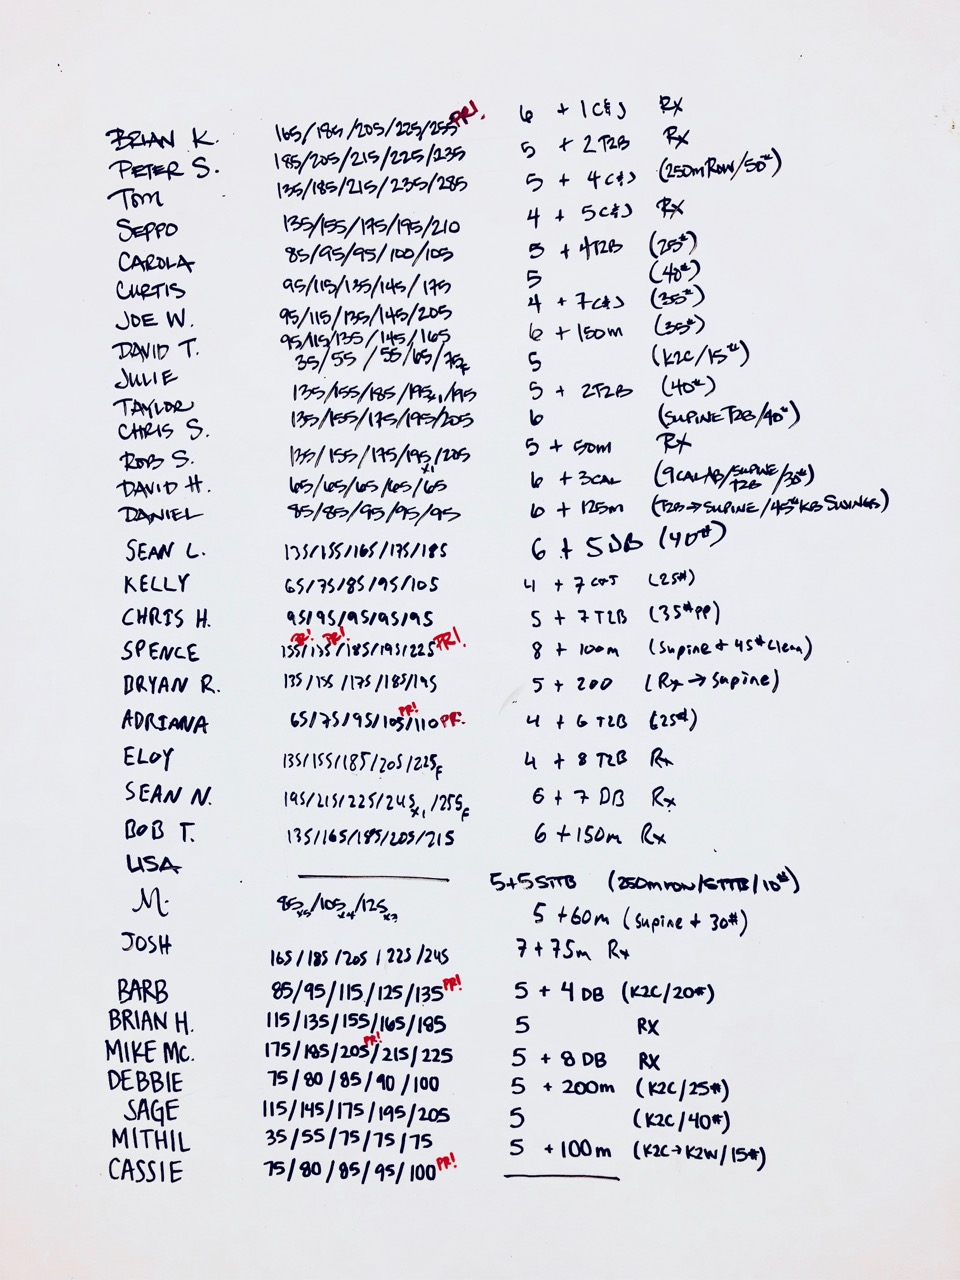 BRIAN K. 165/185/205/225/255 PR! 6 + 1 C&J RX
PETER S. 185/205/215/225/235 5 + 2 T2B RX
TOM 135/185/215/235/285 5 + 4 C&J (250m ROW/50#)
SEPPO 135/155/175/195/210 4 + 5 C&J RX
CAROLA 85/95/95/100/105 5 + 4 T2B (25#)
CURTIS 95/115/135/145/175 5 (40#)
JOE W. 95/115/135/145/205 4 + 7 C&J (35#)
DAVID T. 95/115/135/145/165 6 + 150m (35#)
JULIE 35/55/55/65/75F 5 (K2C/15#)
TAYLOR 135/155/185/195x1/195 5 + 2 T2B (40#)
CHRIS S. 135/155/175/195/205 6 (SUPINE T2B/40#)
ROB S. 135/155/175/195x1/205 5 + 50m RX
DAVID H. 65/65/65/65/65 6 + 3CAL (9CAL AB/SUPINE T2B/30#)
DANIEL 85/85/95/95/95 6 + 125m (T2B→SUPINE/45# KB SWINGS)
SEAN L. 135/155/165/175/185 6 + 5 DB (40#)
KELLY 65/75/85/95/105 4 + 7 C&J (25#)
CHRIS H. 95/95/95/95/95 5 + 7 T2B (35# PP)
SPENCE 135/155/185/195/225 PR! PR! PR! 8 + 100m (Supine + 45# Clean)
BRYAN R. 135/155/175/185/195 5 + 200 (Rx → Supine)
ADRIANA 65/75/95/105/110 PR! PR! 4 + 6 T2B (25#)
ELOY 135/155/185/205/225F 4 + 8 T2B Rx
SEAN N. 195/215/225/245x1/255F 6 + 7 DB Rx
BOB T. 135/165/185/205/215 6 + 150m Rx
LISA 5+5 STTB (250m ROW/STTB/10#)
M. 85x5/105x4/125x3 5 + 60m (Supine + 30#)
JOSH 165/185/205/225/245 7 + 75m Rx
BARB 85/95/115/125/135 PR! 5 + 4 DB (K2C/20#)
BRIAN H. 115/135/155/165/185 5 RX
MIKE MC. 175/185/205/215/225 PR! 5 + 8 DB RX
DEBBIE 75/80/85/90/100 5 + 200m (K2C/25#)
SAGE 115/145/175/195/205 5 (K2C/40#)
MITHIL 35/55/75/75/75 5 + 100m (K2C→K2W/15#)
CASSIE 75/80/85/95/100 PR!